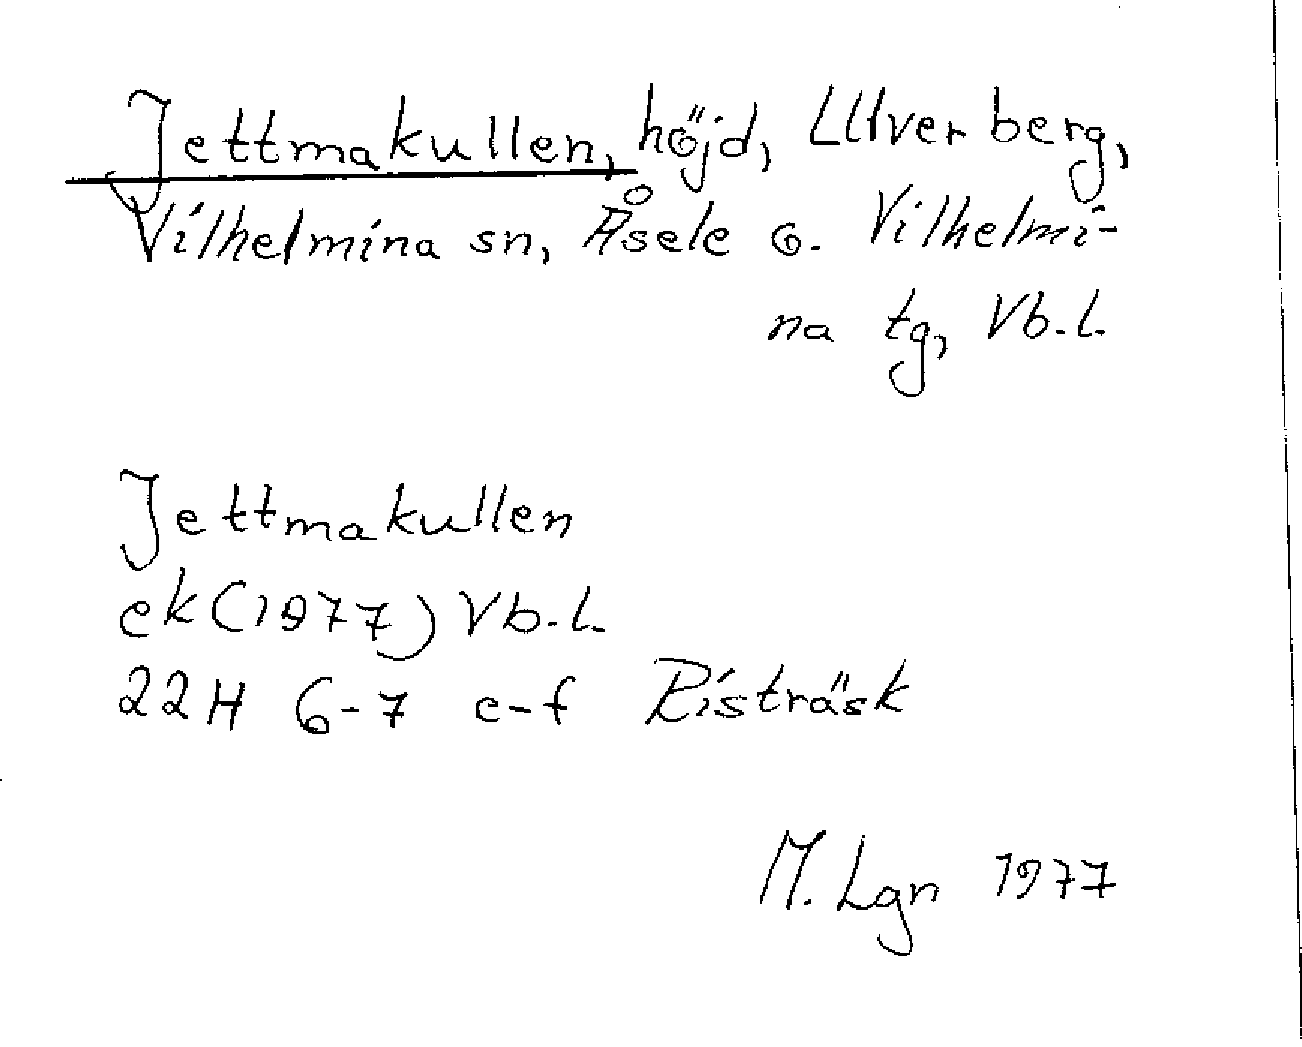 Jettmakullen, höjd, Ulvverberg,
Vilhelmina sn, Åsele o. Vilhelmi-
na tg, Vb.l.
Jettmakullen
ek (1977) Vb.l.
22H 6-7 e-f Risträsk
M. Lgn 1977